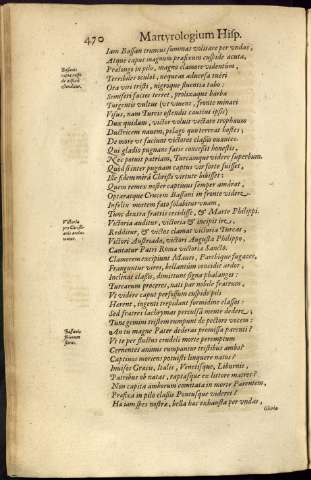 470
Martyrologium Hisp.
Iam Bassan truncus summas volitare per vndas,
Atque caput magnum præfixum cuspide acuta,
Prælongo in pilo, magno clamore videntum,
Terribiles oculos, nequeas
Ora viri tristi, nigroque fluentia tabo:
Semiferi facies terret, prolixaque barba
Turgentis vultus (vt viuens, fronte minaci
Visus, nam Turcis ostendi concitus ipsi)
Dux quidam, victor voluit vectare trophæum
Ductricem nauem, pelago quo terreat hostes;
De more vt faciunt victores classis ouantes.
Qui gladio pugnans fatis concessit honestis,
Nec potuit patriam, Turcamque videre superbum.
Quod si inter pugnam captus vir forte fuisset,
Ille fidem mira Christi virtute bibisset:
Quem remex noster captiuus semper amârat,
Optaratque Crucem Bassani in fronte videre,
Infelix mortem fato soluebatur
Tunc dextra fractis cecidisse, & Marte Philippi.
Victoria auditur, victoria & incipit ire,
Redditur, & voctes clamat victoria Turcas,
Victori Austriada, victori Augusta Philippo,
Cantatur Patri Romæ victoria Sancto.
Clamorem excipiunt Mauri, Parthique fugaces,
Franguntur vires, bellantum concidit ardor,
Inclinat classis, dimittunt signa phalanges:
Turcarum proceres, nati par nobile fratrum,
Vt videre caput perfusum cuspide pili
Hærent, ingenti trepidant formidine classes:
Sed fratres lachrymas percussa mente dedere;
Tunc gemitum tristem rumpunt de pectore vocem:
An tu magne Pater dederas promissa parenti?
Vt te per fluctus crudeli morte peremptum
Cernentes animis rumpantur tristibus ambo?
Captiuos meriens potuiste linquere natos?
Inuisos Græcis, Italis, Venetisque, Liburnis,
Patribus ob natas, raptasque ex littore matres?
Non capita amborum comitata in morte Parentem,
Præfixa in pilo classis Pontusque videret?
Ha iam spes nostræ, bella hac exhausta per vndas,
Gloria
Bassanis
caput
ostenditur.
Victoria
pro Christianis
Bassanis
filiorum
fletus.